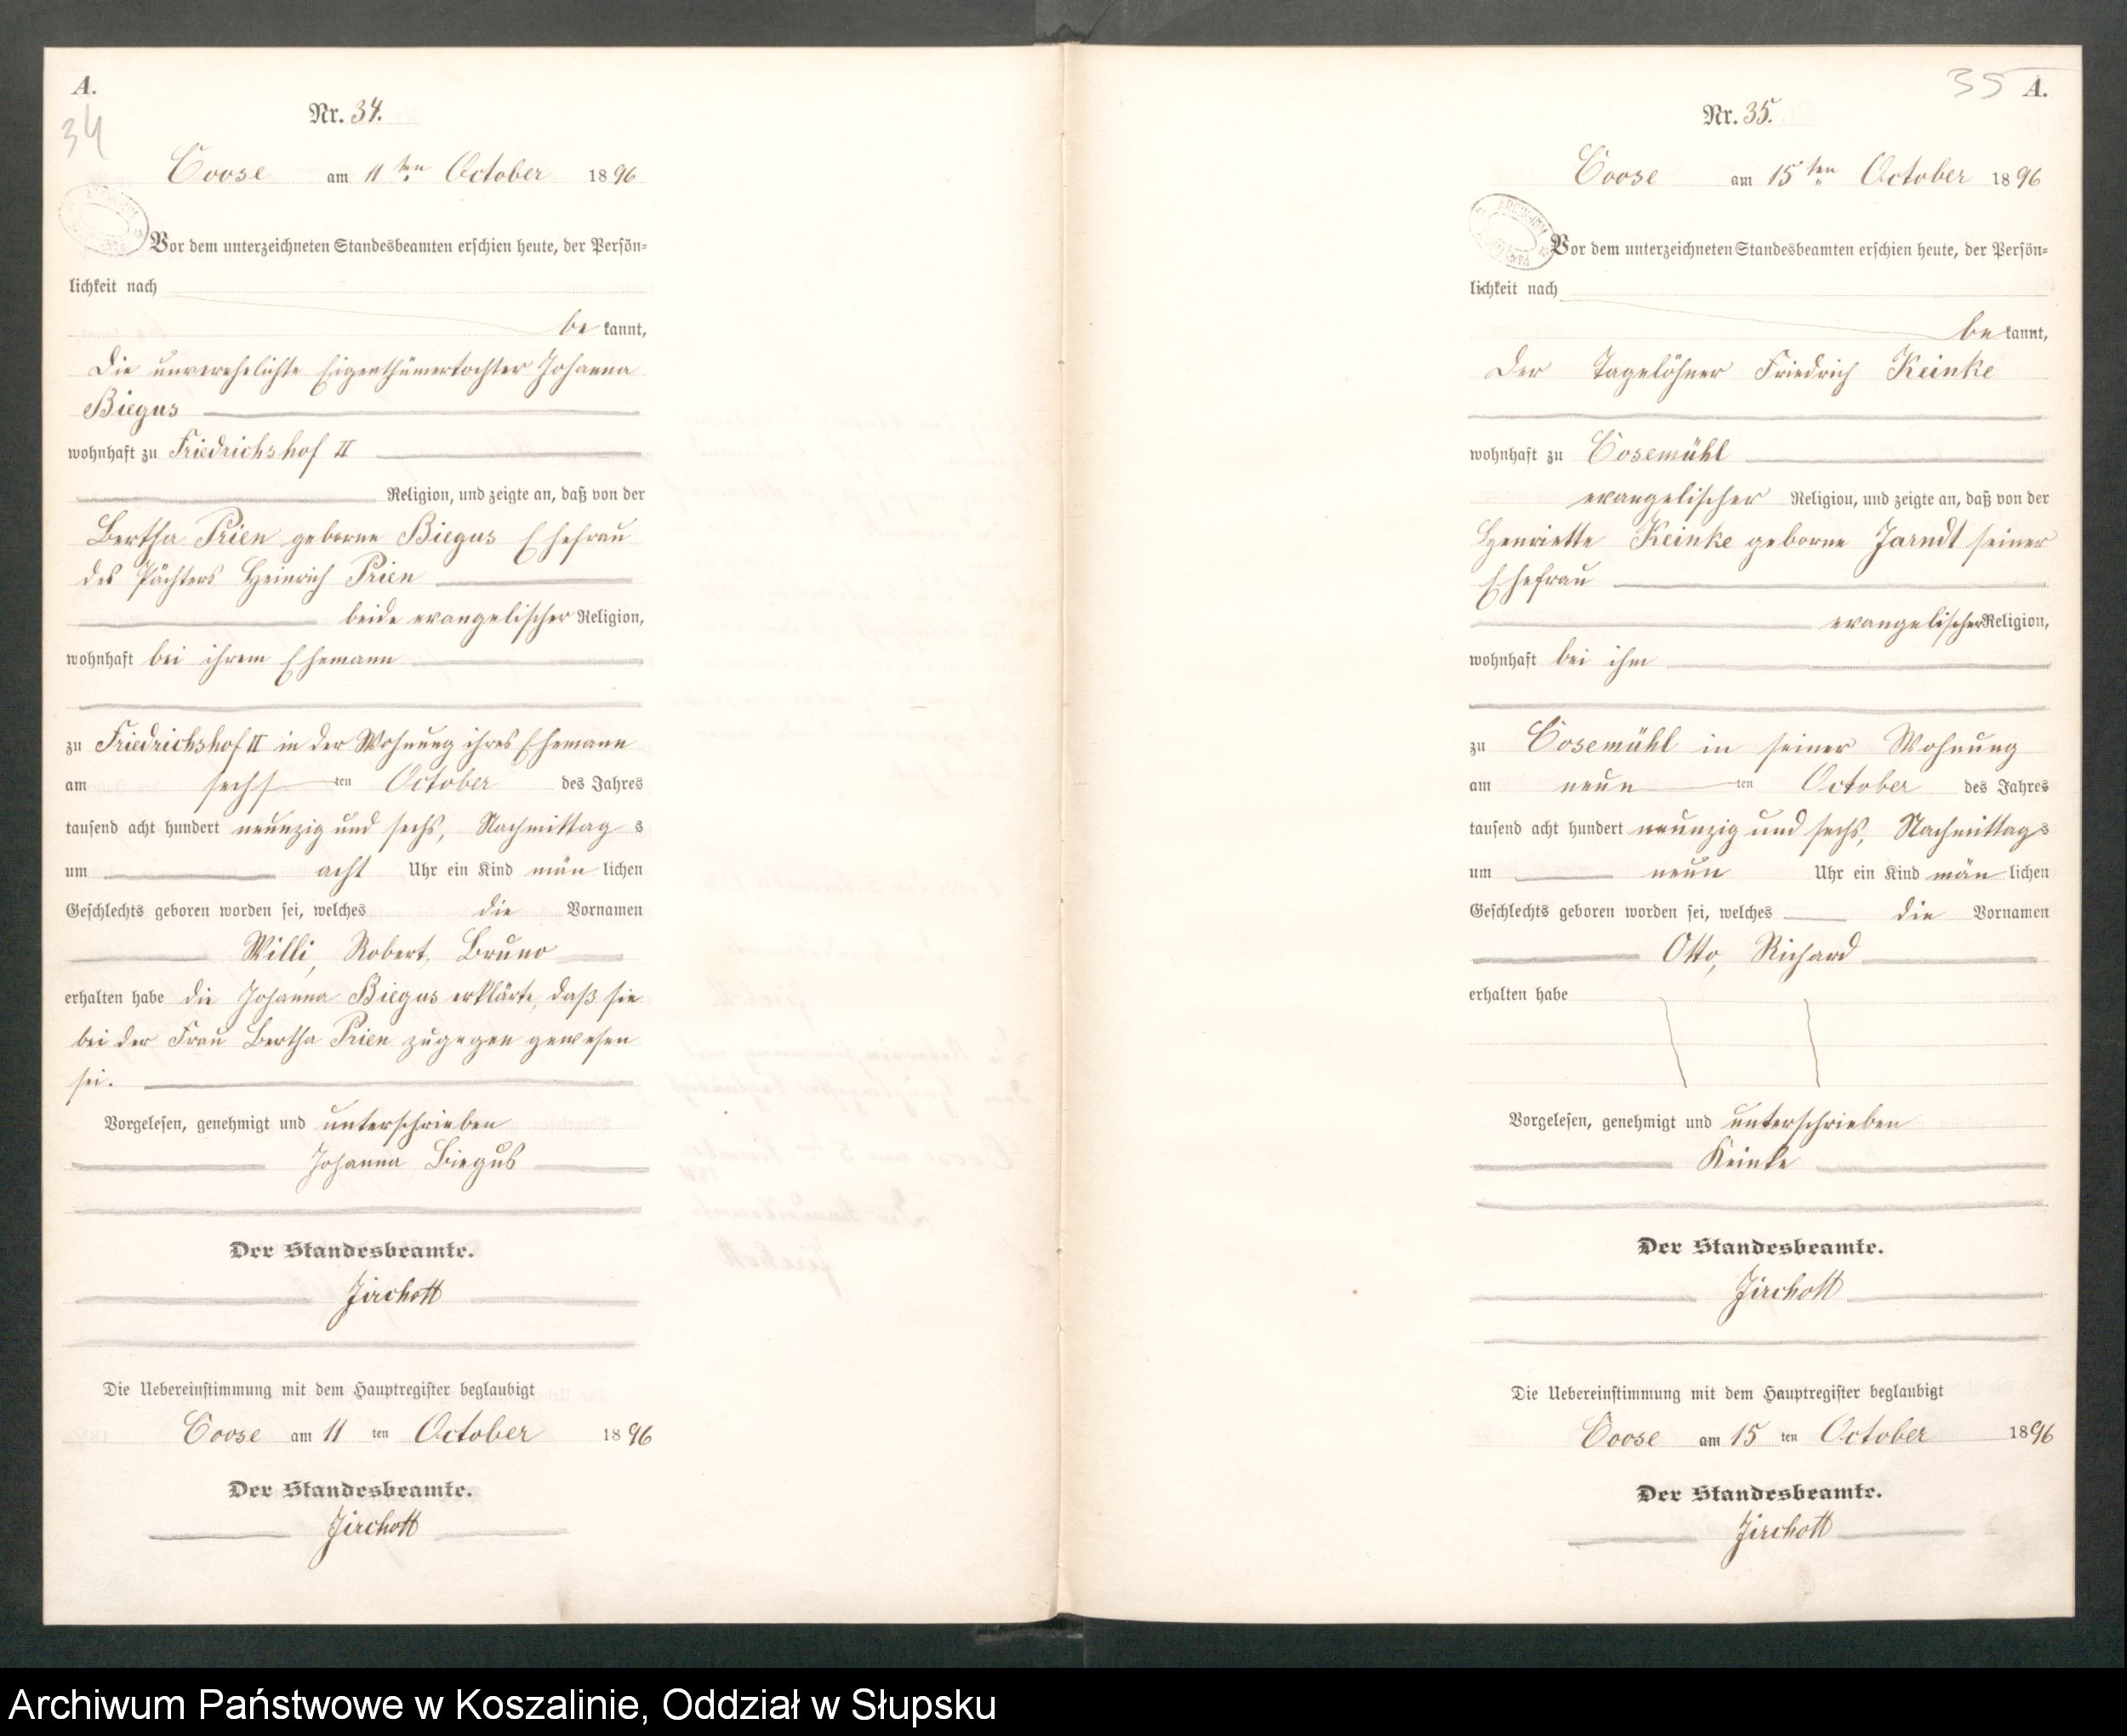 A.
34
Nr. 34.
Coose am 11ten October 1896
Vor dem unterzeichneten Standesbeamten erschien heute, der Persön=
lichkeit nach
be kannt,
die unverehelichte Eigenthümertochter Johanna
Biegus
wohnhaft zu Friedrichshof II
Religion, und zeigte an, daß von der
Bertha Prien geborne Biegus Ehefrau
des Pächters Heinrich Prien
beide evangelischer Religion,
wohnhaft bei ihrem Ehemann
zu Friedrichshof II in der Wohnung ihres Ehemann
am sechsten October des Jahres
tausend acht hundert neunzig und sechs, Nachmittags
um acht Uhr ein Kind män lichen
Geschlechts geboren worden sei, welches die Vornamen
Willi, Robert, Bruno
erhalten habe die Johanna Biegus erklärte, daß sie
bei der Frau Bertha Prien zugegen gewesen
sei.
Vorgelesen, genehmigt und unterschrieben
Johanna Biegus
Der Standesbeamte.
Jirchott
Die Uebereinstimmung mit dem Hauptregister beglaubigt
Coose am 11ten October 1896
Der Standesbeamte.
Jirchott
35 A.
Nr. 35.
Coose am 15ten October 1896
Vor dem unterzeichneten Standesbeamten erschien heute, der Persön=
lichkeit nach
be kannt,
der Tagelöhner Friedrich Keinke
wohnhaft zu Cosemühl
evangelischer Religion, und zeigte an, daß von der
Henriette Keinke geborne Jarndt seiner
Ehefrau
evangelischer Religion,
wohnhaft bei ihm
zu Cosemühl in seiner Wohnung
am neunten October des Jahres
tausend acht hundert neunzig und sechs, Nachmittags
um neun Uhr ein Kind män lichen
Geschlechts geboren worden sei, welches die Vornamen
Otto, Richard
erhalten habe
Vorgelesen, genehmigt und unterschrieben
Keinke
Der Standesbeamte.
Jirchott
Die Uebereinstimmung mit dem Hauptregister beglaubigt
Coose am 15ten October 1896
Der Standesbeamte.
Jirchott
Archiwum Państwowe w Koszalinie, Oddział w Słupsku